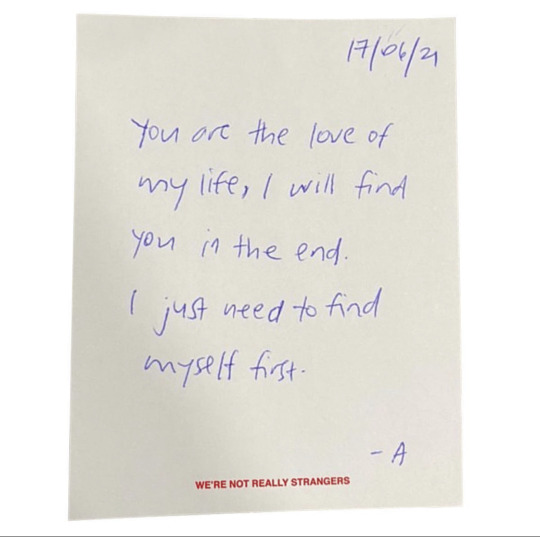 17/06/21
You are the love of
my life, I will find
you in the end.
I just need to find
myself first.
- A
WE'RE NOT REALLY STRANGERS